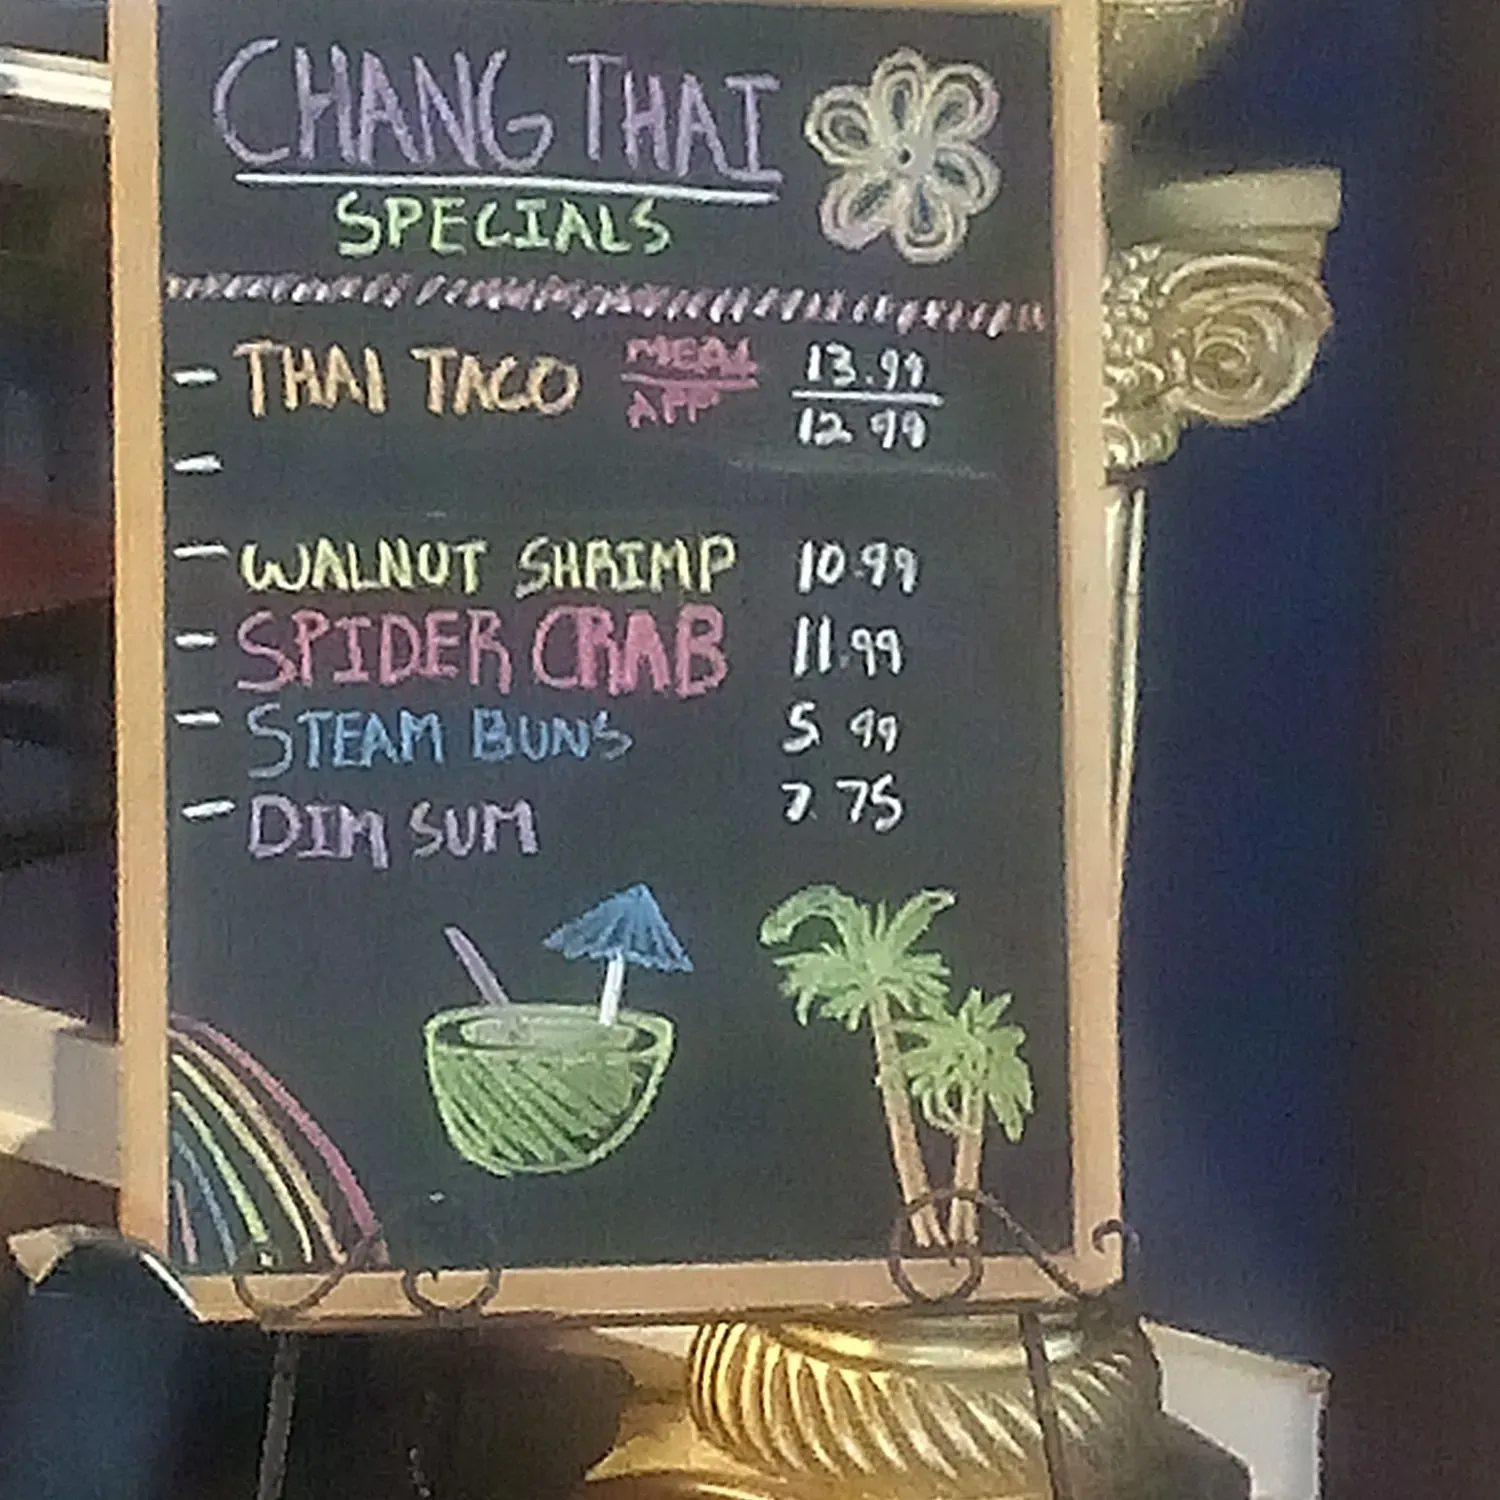 CHANG THAI
SPECIALS
- THAI TACO MEAL 13.99
APP 12 99
-
- WALNUT SHRIMP 10.99
- SPIDER CRAB 11.99
- STEAM BUNS 5 99
- DIM SUM 7.75